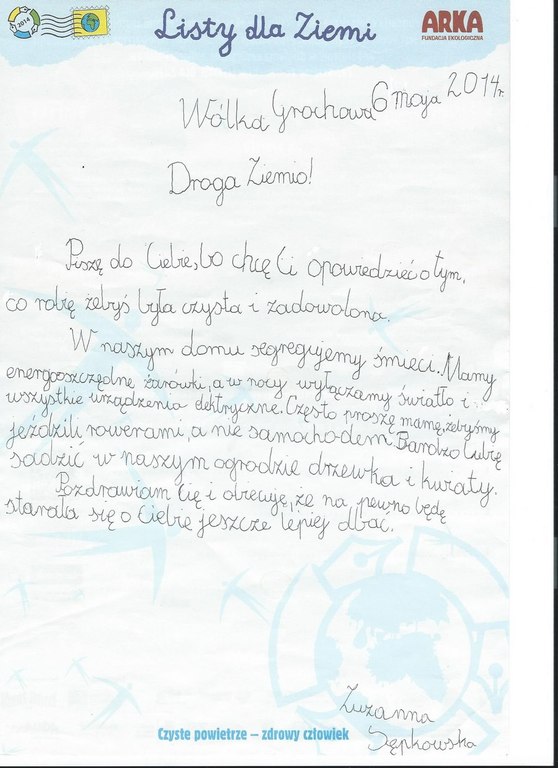 2014
Listy dla Ziemi
ARKA
FUNDACJA EKOLOGICZNA
Wólka Grochowa 6 maja 2014r.
Droga Ziemio!
Piszę do Ciebie, bo chcę Ci opowiedzieć o tym,
co robię żebyś była czysta i zadowolona.
W naszym domu segregujemy śmieci. Mamy
energooszczędne żarówki, a w nocy wyłączamy światło i
wszystkie urządzenia elektryczne. Często proszę mamę, żebyśmy
jeździli rowerami, a nie samochodem. Bardzo lubię
sadzić w naszym ogrodzie drzewka i kwiaty.
Pozdrawiam Cię i obiecuję, że na pewno będę
starała się o Ciebie jeszcze lepiej dbać.
Zuzanna
Sępkowska
Czyste powietrze – zdrowy człowiek